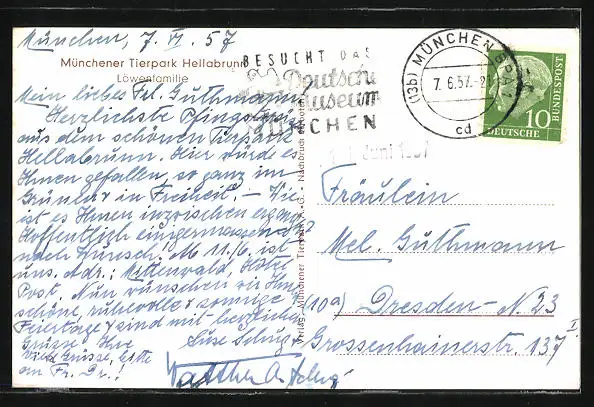 München, 7. VI. 57
Münchener Tierpark Hellabrunn
Löwenfamilie
Mein liebes Frl. Guthmann!
Herzlichste Pfingstgrüße
aus dem schönen Tierpark
Hellabrunn. Hier würde es
Ihnen gefallen, so ganz im
Grünen in Freiheit. – Wie
ist es Ihnen inzwischen ergangen?
Hoffentlich einigermassen
nach Wunsch! Ab 11./6. ist
uns. Adr.: Mittenwald, Hotel
Post. Nun wünschen wir Ihnen
schöne, ruhevolle & sonnige
Feiertage & sind mit herzlichen
Grüssen Ihre
Viele Grüsse, bitte
an Fr. Dr.!
Verlag: Münchener Tierpark A.-G. - Nachdruck verboten
BESUCHT DAS
Deutsche
Museum
MÜNCHEN
(13b) MÜNCHEN BPA
7. 6.57.-2
cd
10
DEUTSCHE
BUNDESPOST
Juni 1957
Fräulein
Mel. Guthmann
(10a) Dresden – N. 23
Grossenhainerstr. 137 I